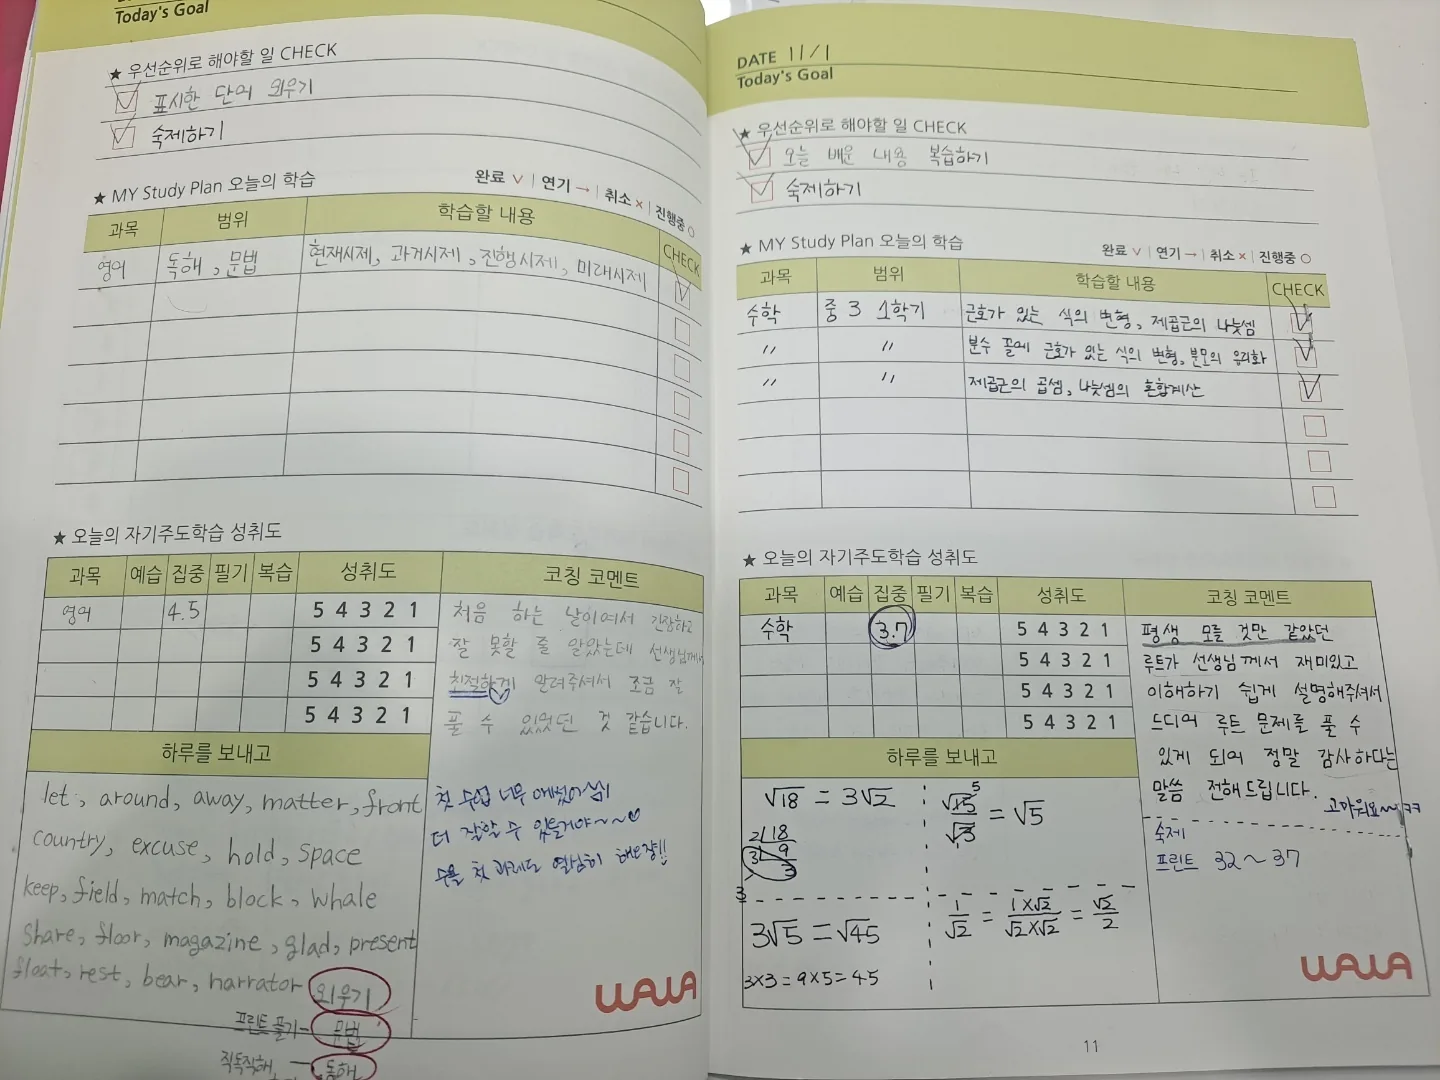 Today's Goal
★ 우선순위로 해야할 일 CHECK
표시한 단어 외우기
숙제하기
★ MY Study Plan 오늘의 학습
완료 ∨ | 연기 → | 취소 × | 진행중 ○
과목 범위 학습할 내용 CHECK
영어 독해, 문법 현재시제, 과거시제, 진행시제, 미래시제
★ 오늘의 자기주도학습 성취도
과목 예습 집중 필기 복습 성취도 코칭 코멘트
영어 4.5 5 4 3 2 1
5 4 3 2 1
5 4 3 2 1
5 4 3 2 1
처음 하는 날이여서 긴장하고
잘 못할 줄 알았는데 선생님께서
친절하게 알려주셔서 조금 잘
풀 수 있었던 것 같습니다.
첫 수업 너무 애썼어
더 잘할 수 있을거야~~♡
첫 과제도 열심히 해보쟝!!
하루를 보내고
let, around, away, matter, front
country, excuse, hold, space
keep, field, match, block, whale
share, floor, magazine, glad, present
float, rest, bear, narrator 외우기
프린트 풀기 - 문법
직독직해 — 독해
WAWA
DATE 11/1
Today's Goal
★ 우선순위로 해야할 일 CHECK
오늘 배운 내용 복습하기
숙제하기
★ MY Study Plan 오늘의 학습
완료 ∨ | 연기 → | 취소 × | 진행중 ○
과목 범위 학습할 내용 CHECK
수학 중 3 1학기 근호가 있는 식의 변형, 제곱근의 나눗셈
〃 〃 분수 꼴에 근호가 있는 식의 변형, 분모의 유리화
〃 〃 제곱근의 곱셈, 나눗셈의 혼합계산
★ 오늘의 자기주도학습 성취도
과목 예습 집중 필기 복습 성취도 코칭 코멘트
수학 3.7 5 4 3 2 1
5 4 3 2 1
5 4 3 2 1
5 4 3 2 1
평생 모를 것만 같았던
루트가 선생님께서 재미있고
이해하기 쉽게 설명해주셔서
드디어 루트 문제를 풀 수
있게 되어 정말 감사하다는
말씀 전해드립니다.
고마워요~ㅋㅋ
숙제
프린트 32~37
하루를 보내고
√18 = 3√2
2 18
3 9
3
√15/√3 = √5
5
3√5 = √45
3×3=9×5=45
1/√2 = 1×√2/√2×√2 = √2/2
WAWA
11